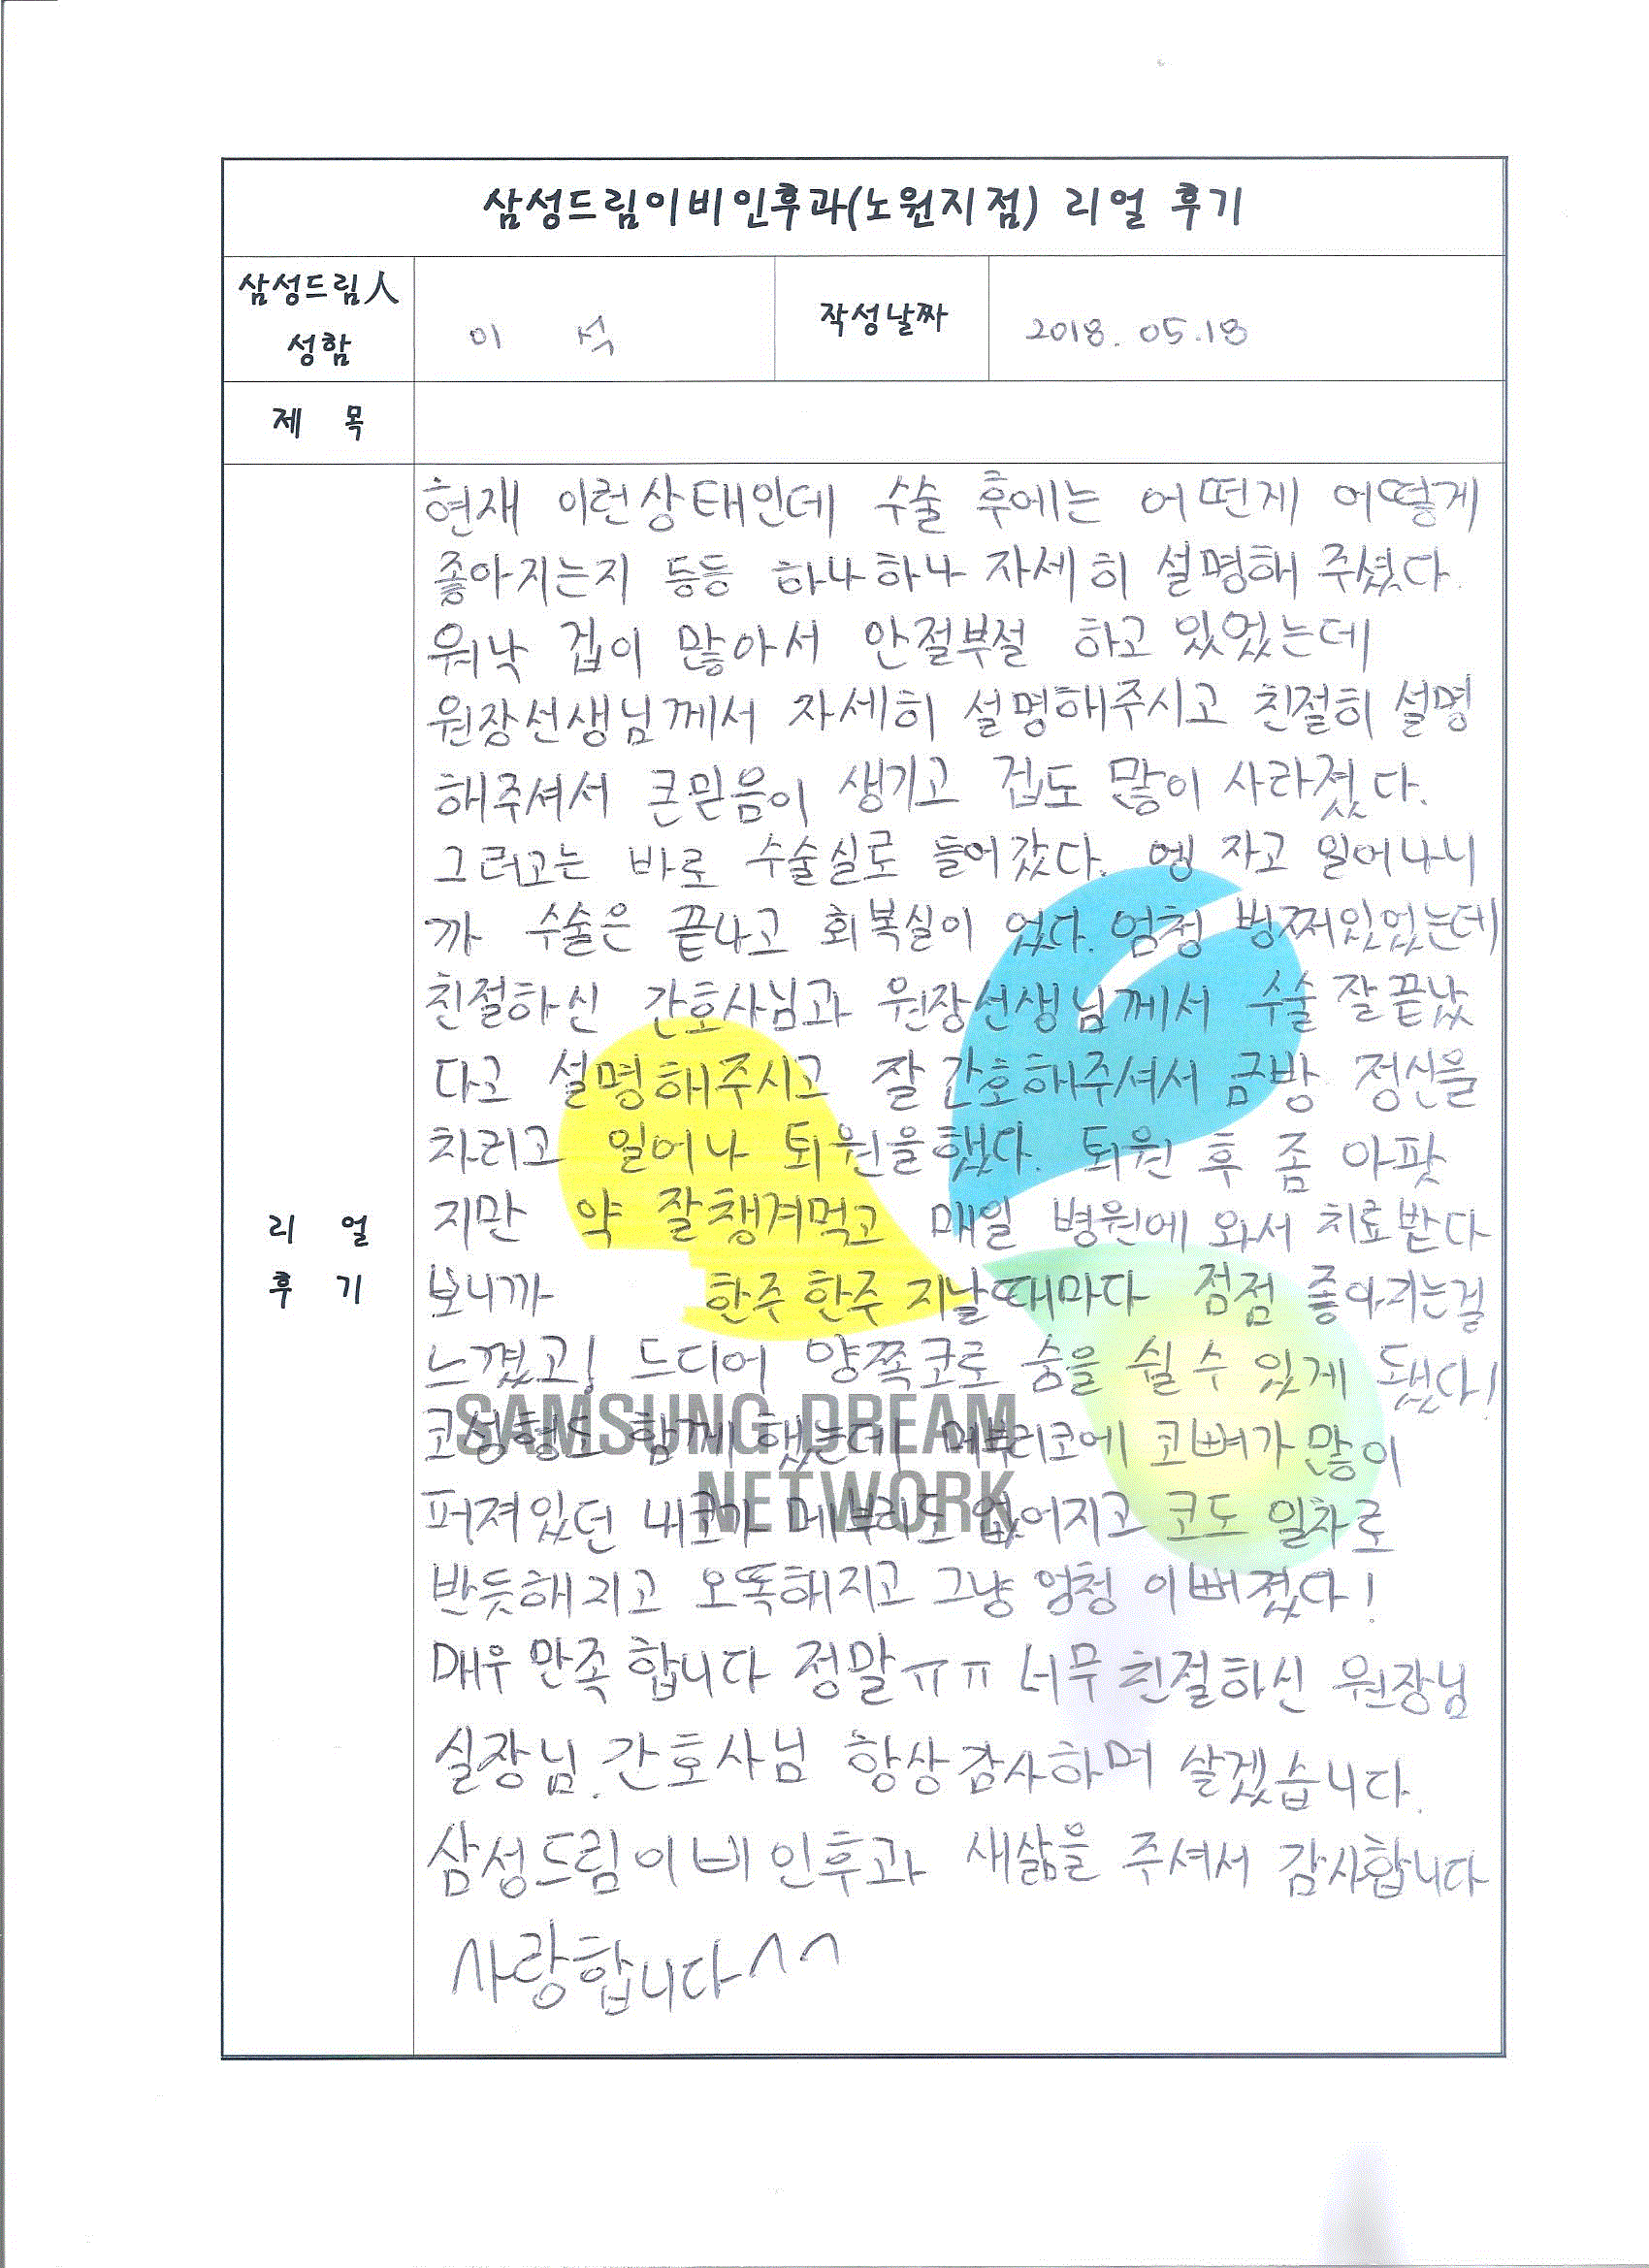 삼성드림이비인후과(노원지점) 리얼 후기
삼성드림人 성함
이 석
작성날짜
2018. 05.18
제 목
리 얼 후 기
현재 이런상태인데 수술 후에는 어떤게 어떻게
좋아지는지 등등 하나하나 자세히 설명해 주셨다.
워낙 겁이 많아서 안절부절 하고 있었는데
원장선생님께서 자세히 설명해주시고 친절히 설명
해주셔서 큰믿음이 생기고 겁도 많이 사라졌다.
그러고는 바로 수술실로 들어갔다. 엥 자고 일어나니
까 수술은 끝나고 회복실이 었다. 엄청 벙쪄있었는데
친절하신 간호사님과 원장선생님께서 수술 잘끝났
다고 설명해주시고 잘 간호해주셔서 금방 정신을
차리고 일어나 퇴원을했다. 퇴원 후 좀 아팟
지만 약 잘챙겨먹고 매일 병원에 와서 치료받다
보니까 한주 한주 지날때마다 점점 좋아지는걸
느꼈고! 드디어 양쪽코로 숨을 쉴 수 있게 됐다!
코성형도 함께 했는데 메부리코에 코뼈가 많이
퍼져있던 내코가 메부리도 없어지고 코도 일자로
반듯해지고 오똑해지고 그냥 엄청 이뻐졌다!
매우 만족 합니다 정말ㅠㅠ 너무 친절하신 원장님
실장님. 간호사님 항상 감사하며 살겠습니다.
삼성드림이비인후과 새삶을 주셔서 감사합니다
사랑합니다^^
SAMSUNG DREAM
NETWORK